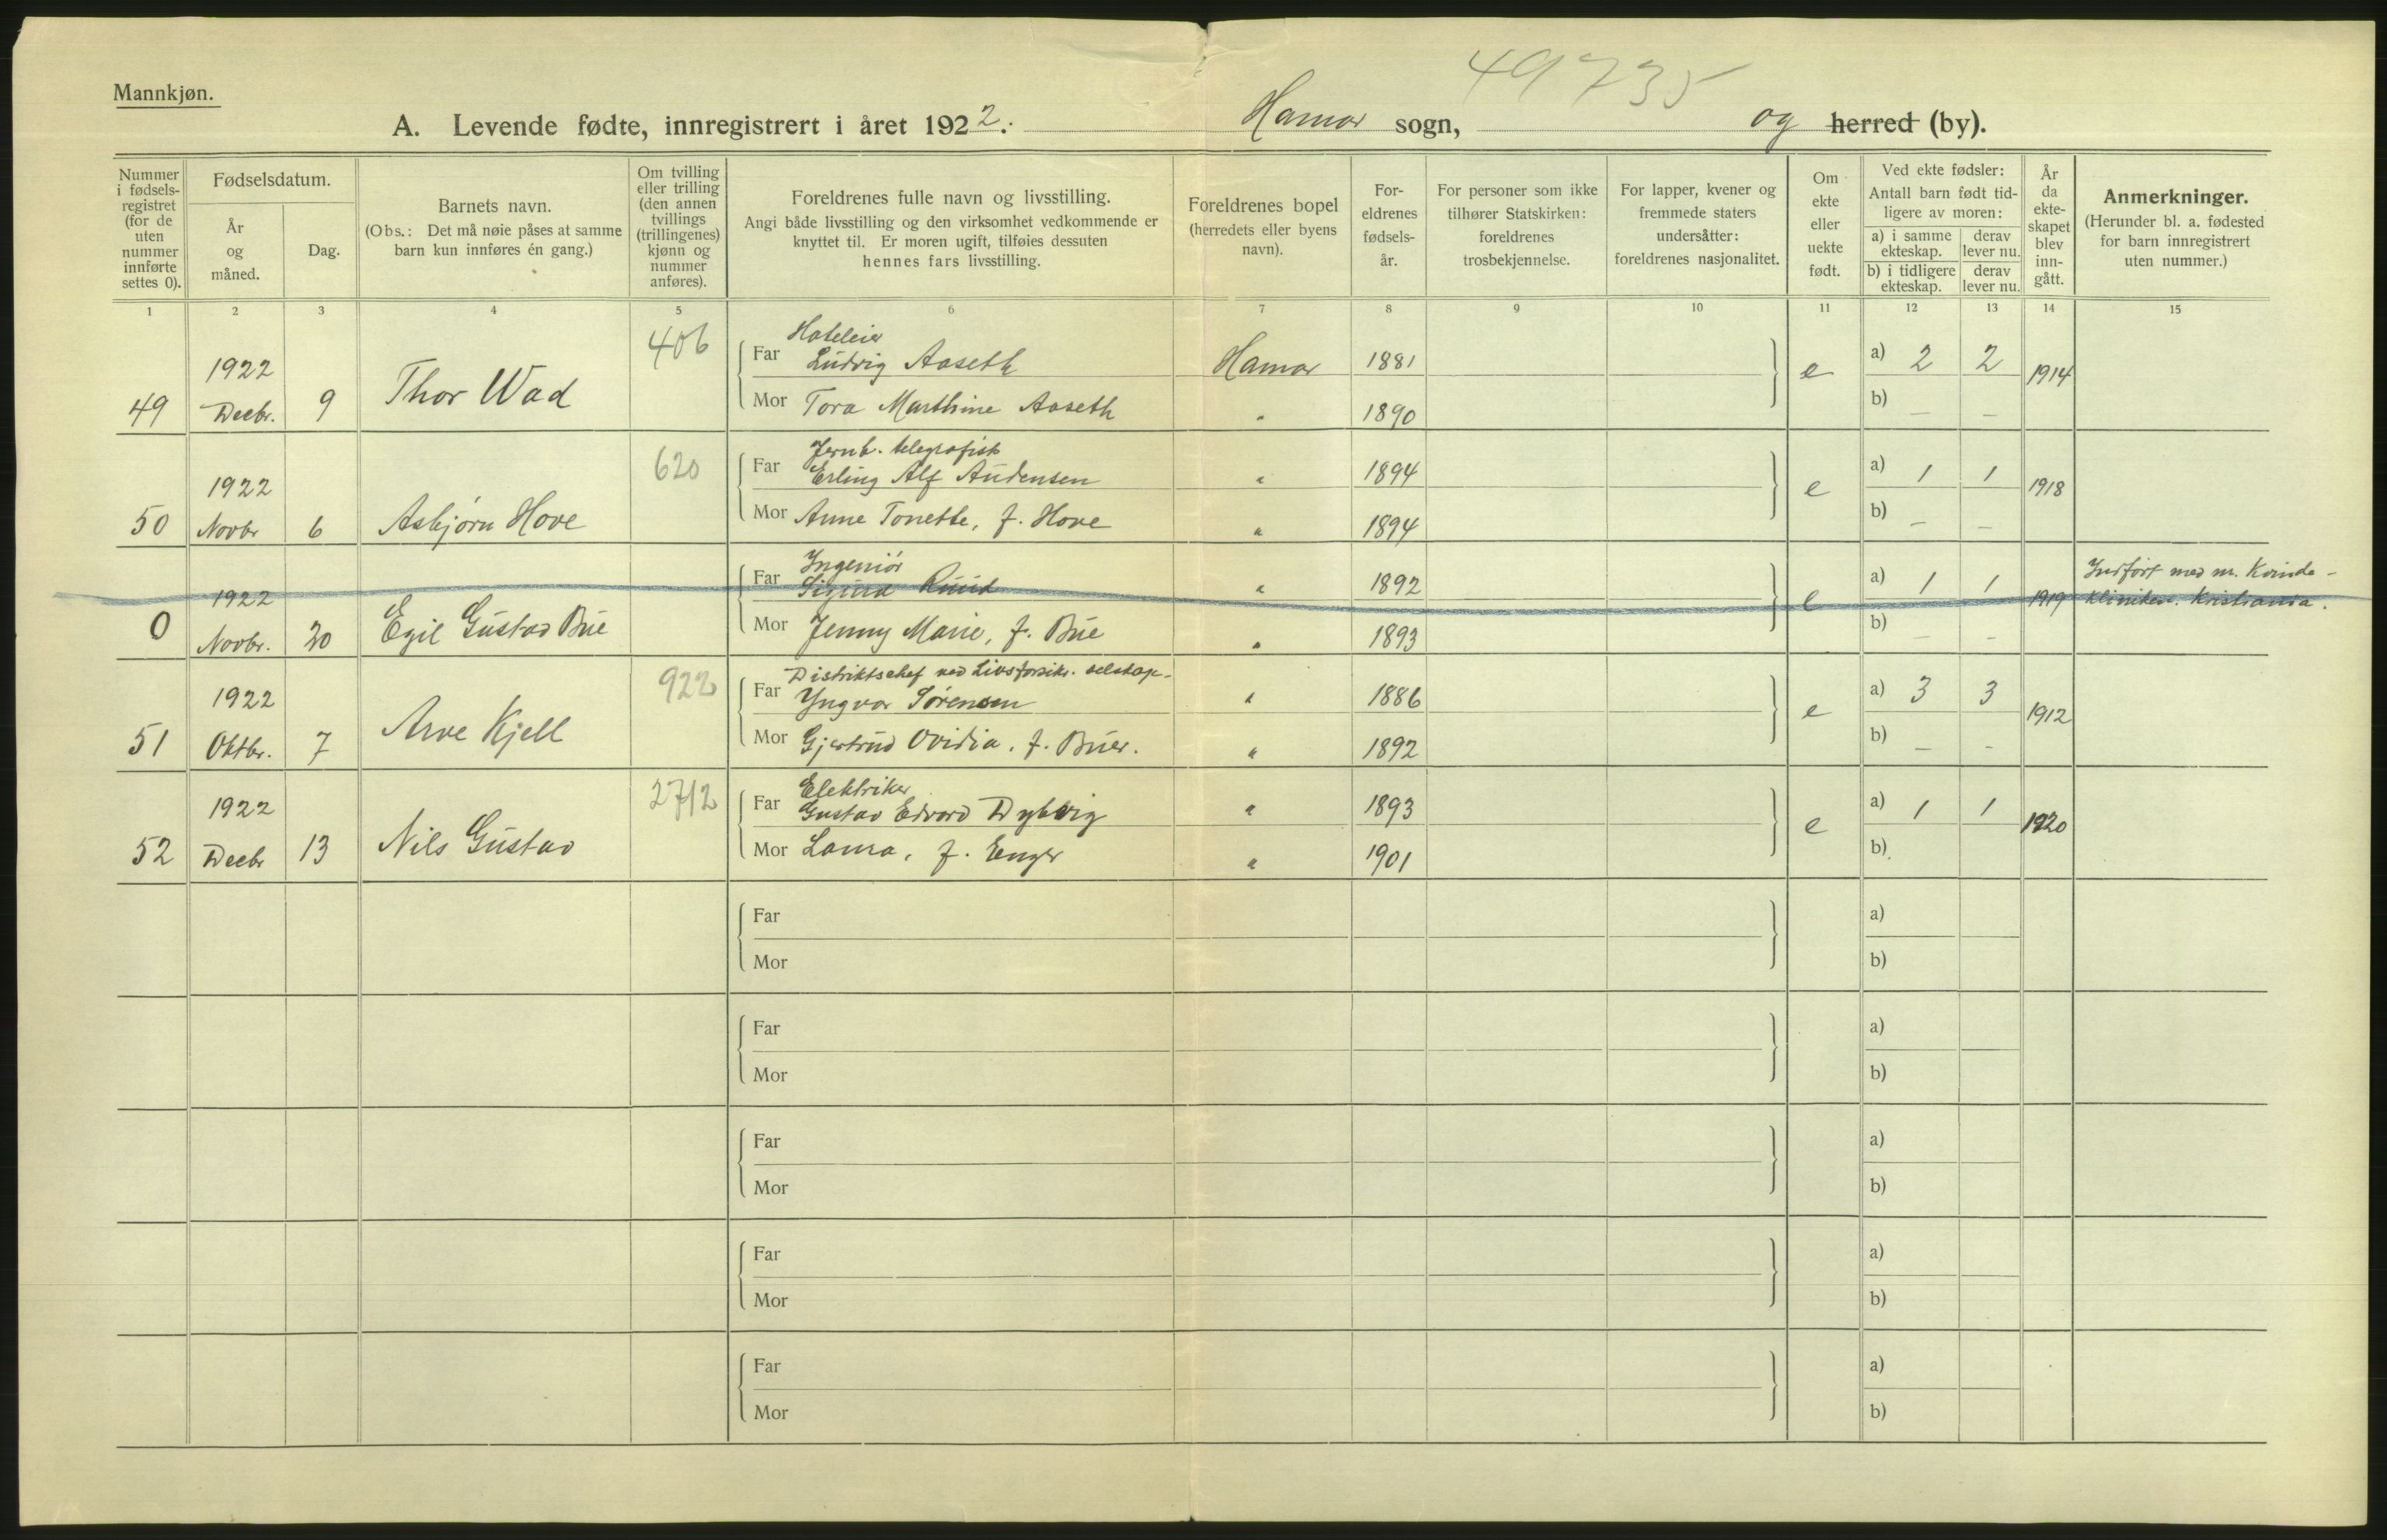 49735
Mannkjøn.
A. Levende fødte, innregistrert i året 1922. Hamar sogn, og herred (by).
Nummer i fødsels-registret (for de uten nummer innførte settes 0).
Fødselsdatum.
År og måned.
Dag.
Barnets navn.
(Obs.: Det må nøie påses at samme barn kun innføres én gang.)
Om tvilling eller trilling (den annen tvillings (trillingenes) kjønn og nummer anføres).
Foreldrenes fulle navn og livsstilling.
Angi både livsstilling og den virksomhet vedkommende er knyttet til. Er moren ugift, tilføies dessuten hennes fars livsstilling.
Foreldrenes bopel (herredets eller byens navn).
For-eldrenes fødsels-år.
For personer som ikke tilhører Statskirken: foreldrenes trosbekjennelse.
For lapper, kvener og fremmede staters undersåtter: foreldrenes nasjonalitet.
Om ekte eller uekte født.
Ved ekte fødsler:
Antall barn født tid-ligere av moren:
a) i samme ekteskap. derav lever nu.
b) i tidligere ekteskap. derav lever nu.
År da ekte-skapet blev inn-gått.
Anmerkninger.
(Herunder bl. a. fødested for barn innregistrert uten nummer.)
1 2 3 4 5 6 7 8 9 10 11 12 13 14 15
406 Hoteleier
1922 Far Ludvig Aaseth Hamar 1881 e a) 2 2 1914
49 Decbr. 9 Thor Wad Mor Tora Marthine Aaseth " 1890 b) — —
620 Jernb. telegrafist
1922 Far Erling Alf Audensen " 1894 e a) 1 1 1918
50 Novbr 6 Asbjørn Hove Mor Anne Tonette, f. Hove " 1894 b) — —
Ingeniør
1922 Far Sigurd Ruud " 1892 e a) 1 1 1919 Indført med m. Kvinde-
klinikken. Kristiania.
0 Novbr. 20 Egil Gustav Bue Mor Jenny Marie, f. Bue " 1893 b) — —
922 Distriktschef ved Livsforsikr. selskap-
1922 Far Yngvar Sørensen " 1886 e a) 3 3 1912
51 Oktbr. 7 Arve Kjell Mor Gjertrud Ovidia, f. Buer. " 1892 b) — -
2712 Elektriker
1922 Far Gustav Edvard Dybvig " 1893 e a) 1 1 1920
52 Decbr 13 Nils Gustav Mor Laura, f. Enger " 1901 b)
Far a)
Mor b)
Far a)
Mor b)
Far a)
Mor b)
Far a)
Mor b)
Far a)
Mor b)